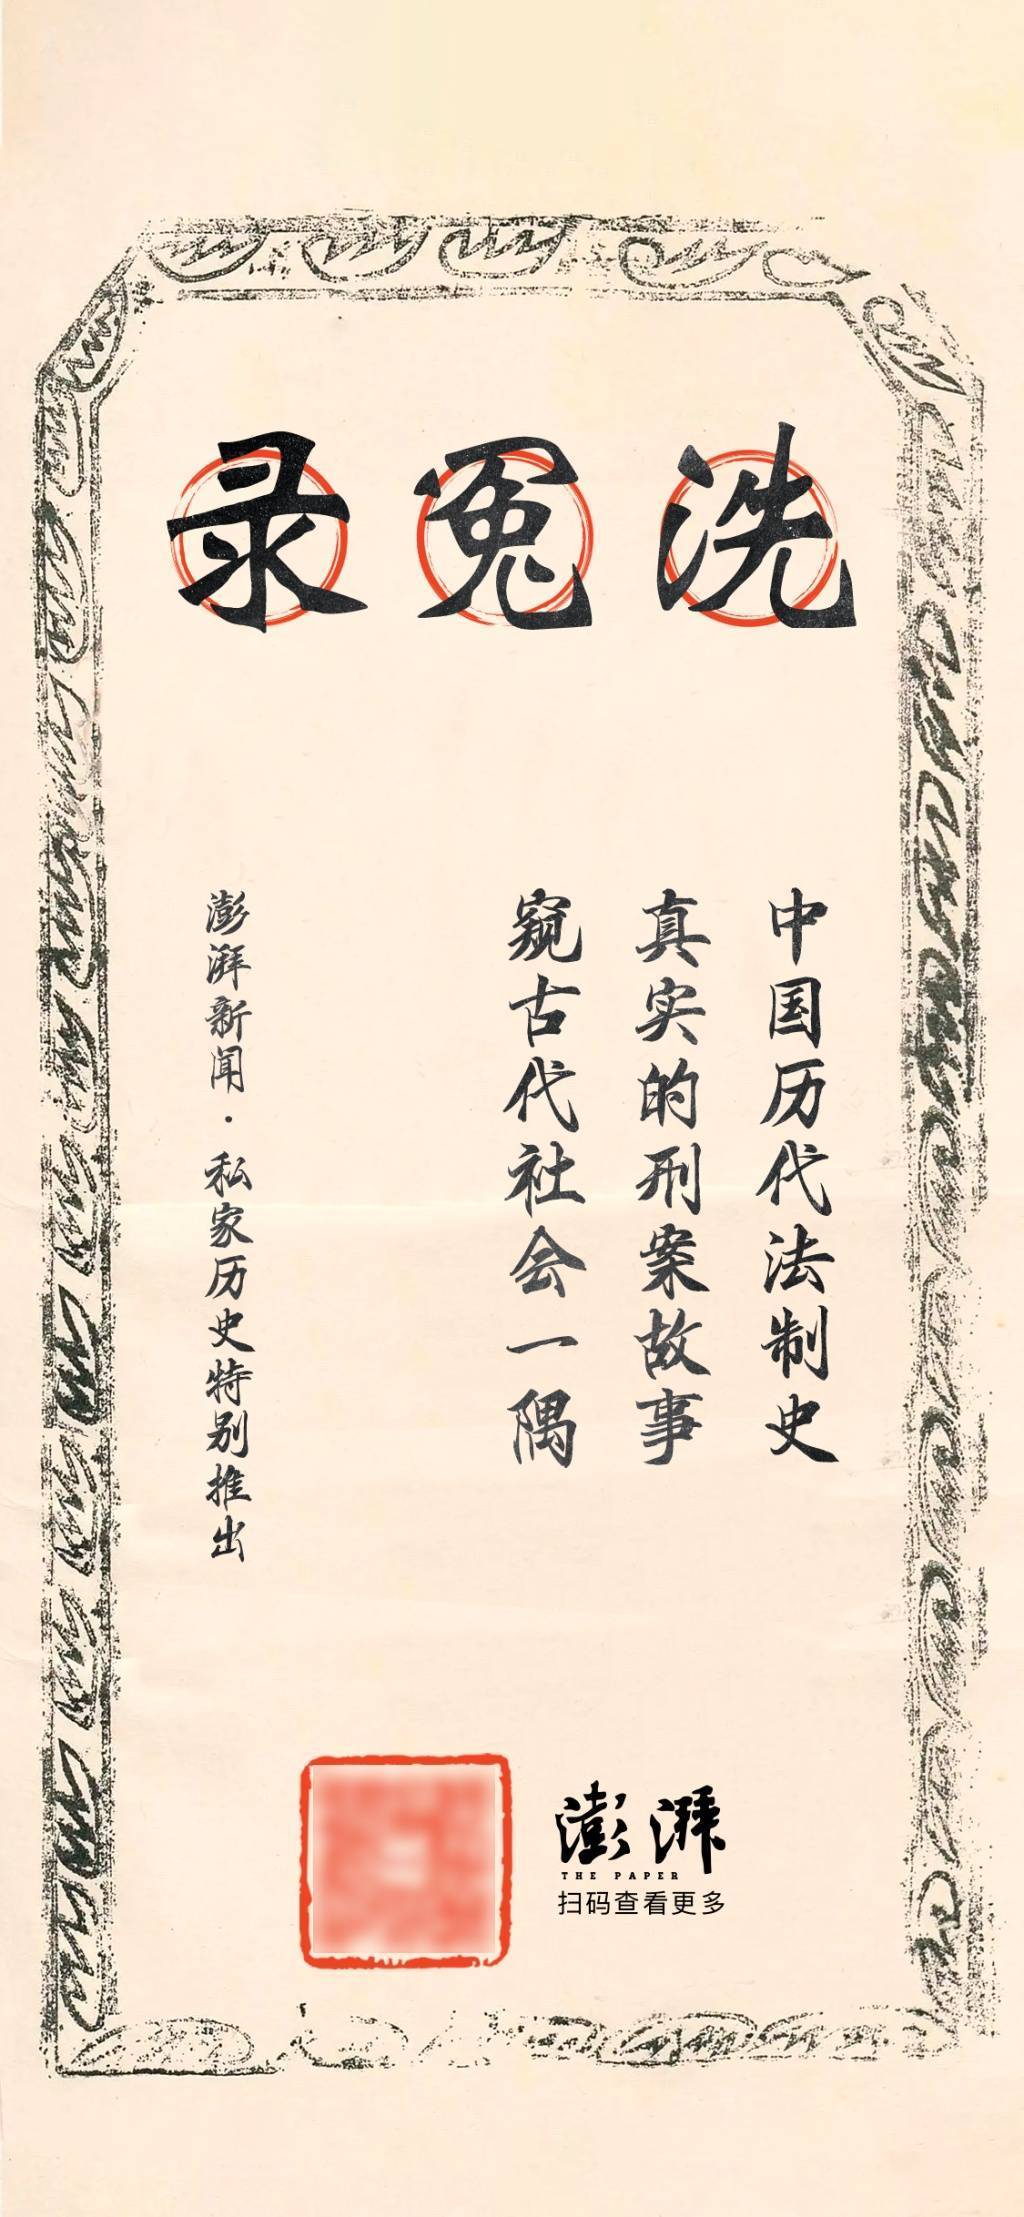 洗冤录
中国历代法制史
真实的刑案故事
窥古代社会一隅
澎湃新闻·私家历史特别推出
澎湃
THE PAPER
扫码查看更多